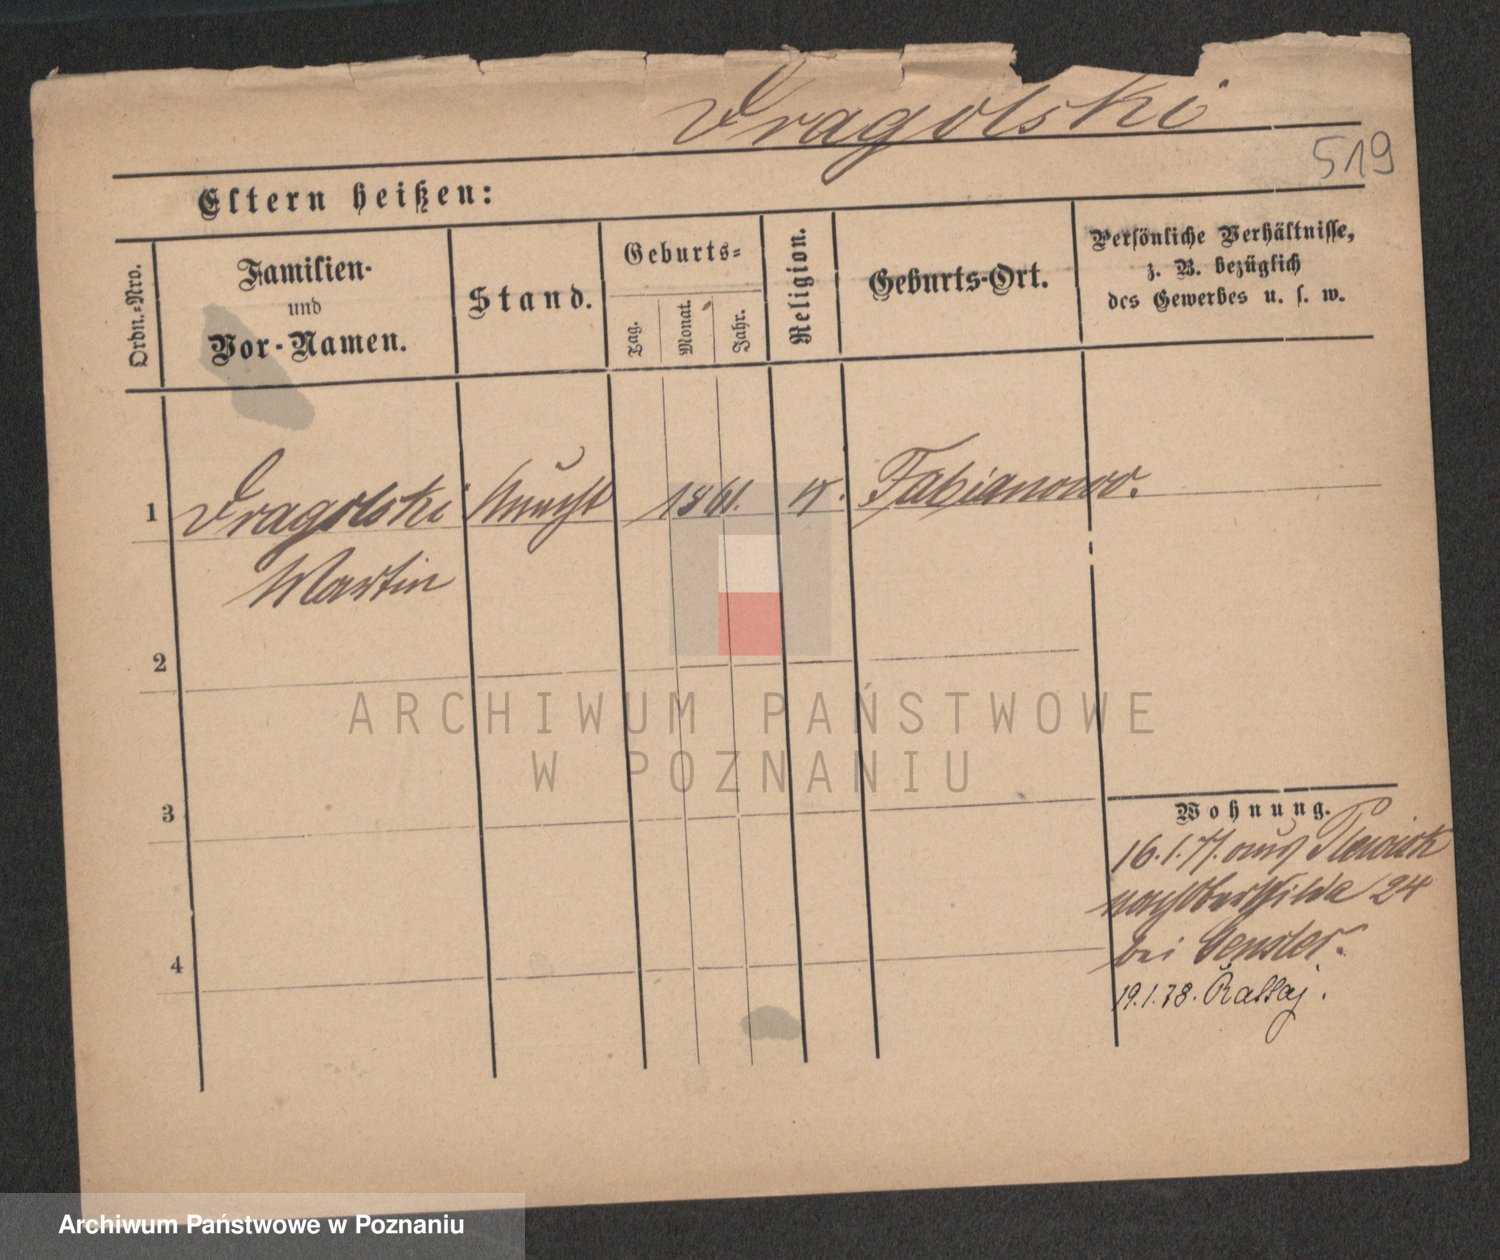 Dragolski
519
Eltern heißen:
Ordn.-Nro.
Familien-
und
Vor-Namen.
Stand.
Geburts-
Tag.
Monat.
Jahr.
Religion.
Geburts-Ort.
Persönliche Verhältnisse,
z. B. bezüglich
des Gewerbes u. s. w.
1 Dragolski Knecht 1861. K. Fabianowo.
Martin
2
ARCHIWUM PAŃSTWOWE
W POZNANIU
3
Wohnung.
16.1.77. aus Plewisk
nach Ober Wilda 24
bei
4
19.1.78. Rattaj.
Archiwum Państwowe w Poznaniu